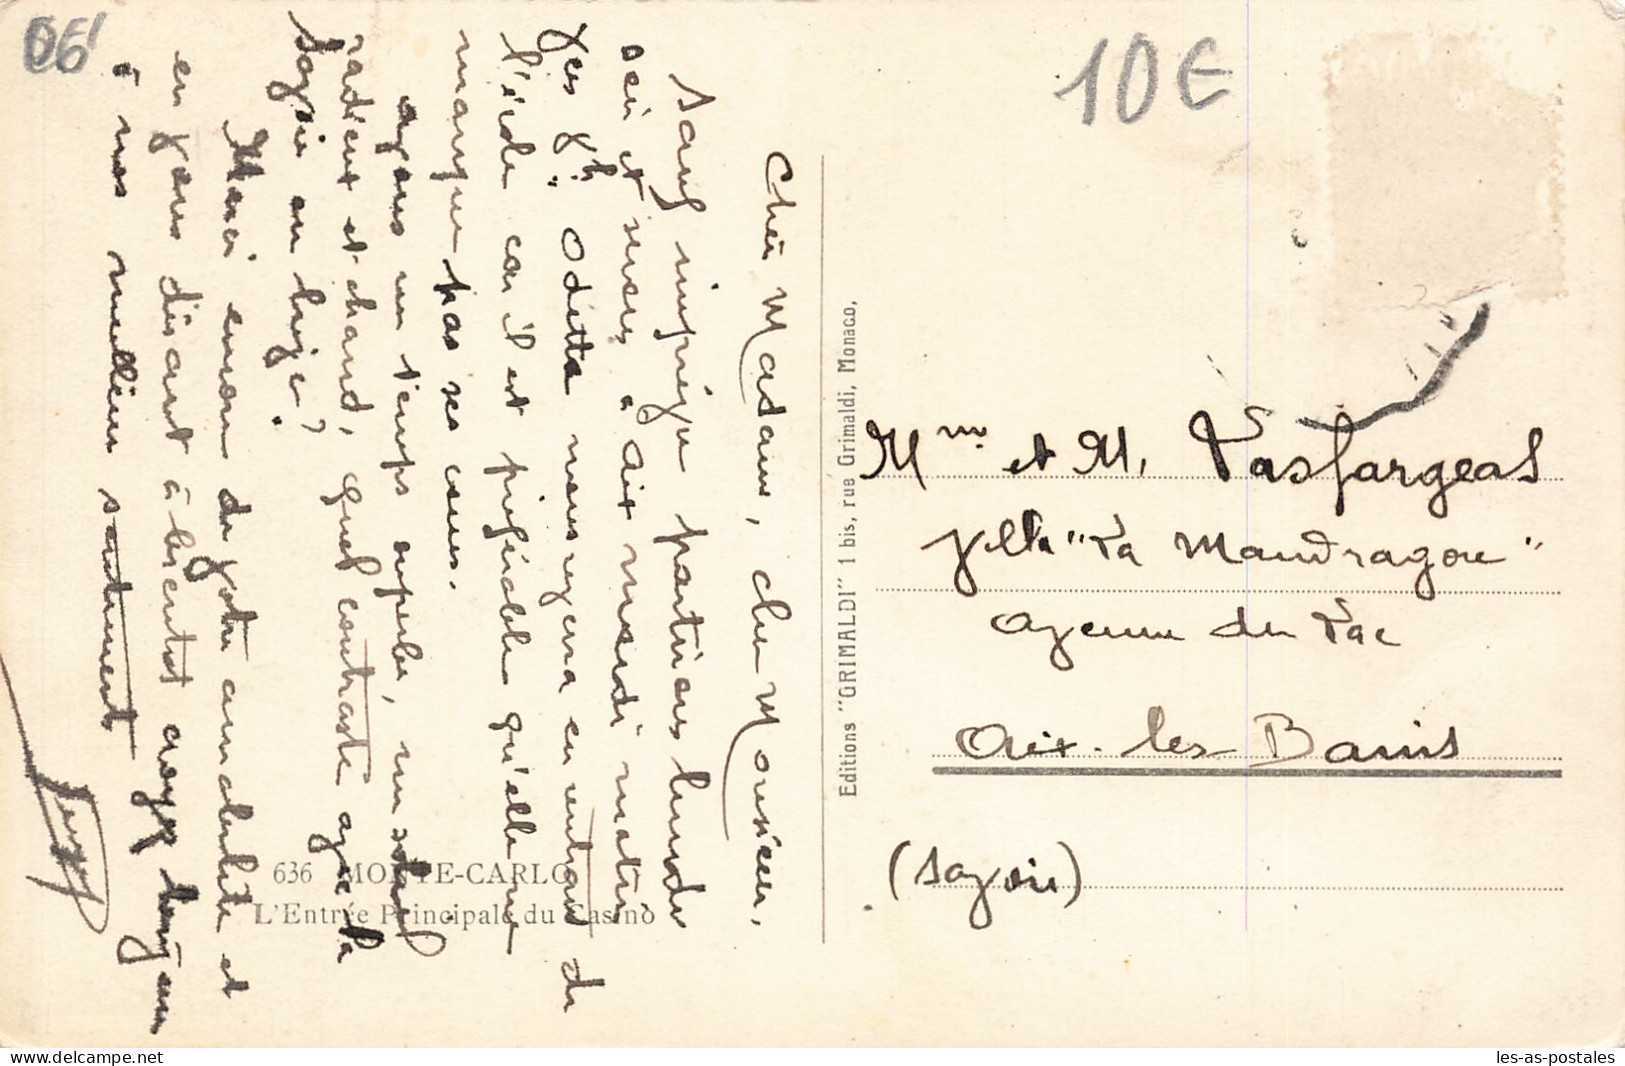 06
10€
Cher Madame, cher Monsieur,
Sauf imprévu partirons lundi
soir et serons à Aix mardi matin
vers 9h. Odette nous verra en rentrant de
l'école car il est préférable qu'elle ne
manque pas ses cours.
avons un temps superbe, un soleil
radieux et chaud, quel contraste avec la
Savoie en neige?
Merci encore de votre amabilité et
en vous disant à bientôt croyez toujours
à nos meilleurs sentiments
636 MONTE-CARLO
L'Entrée Principale du Casino
Editions "GRIMALDI" 1 bis, rue Grimaldi, Monaco,
Mme et M. Lasfargeas
Villa "La Mandragore"
Avenue du Lac
Aix-les-Bains
(Savoie)
delcampe.net
les-as-postales